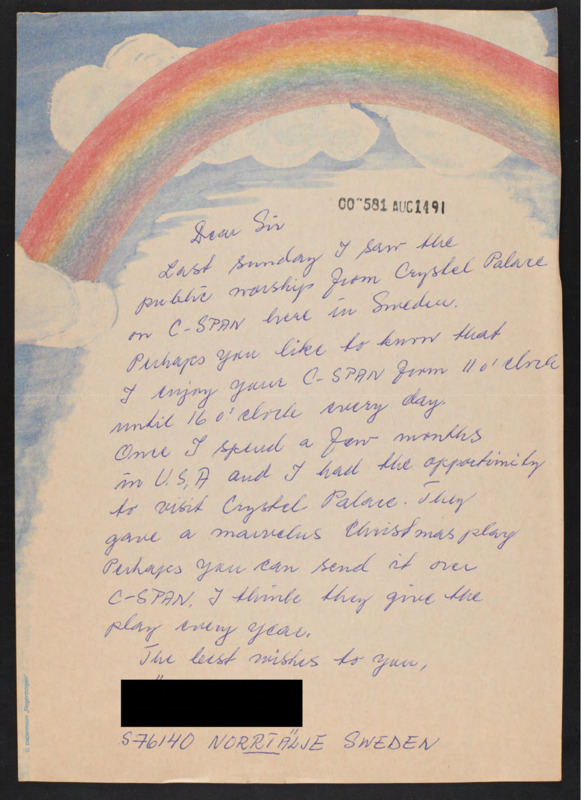 00"581 AUG1491
Dear Sir
Last sunday I saw the
public worship from Crystel Palace
on C-SPAN here in Sweden.
Perhaps you like to know that
I enjoy your C-SPAN from 11 o'clock
until 16 o'clock every day
Once I spend a few months
in U.S,A and I had the opportunity
to visit Crystel Palace. They
gave a marvelus Christmas play
Perhaps you can send it over
C-SPAN. I think they give the
play every year.
The best wishes to you,
S76140 NORRTÄLJE SWEDEN